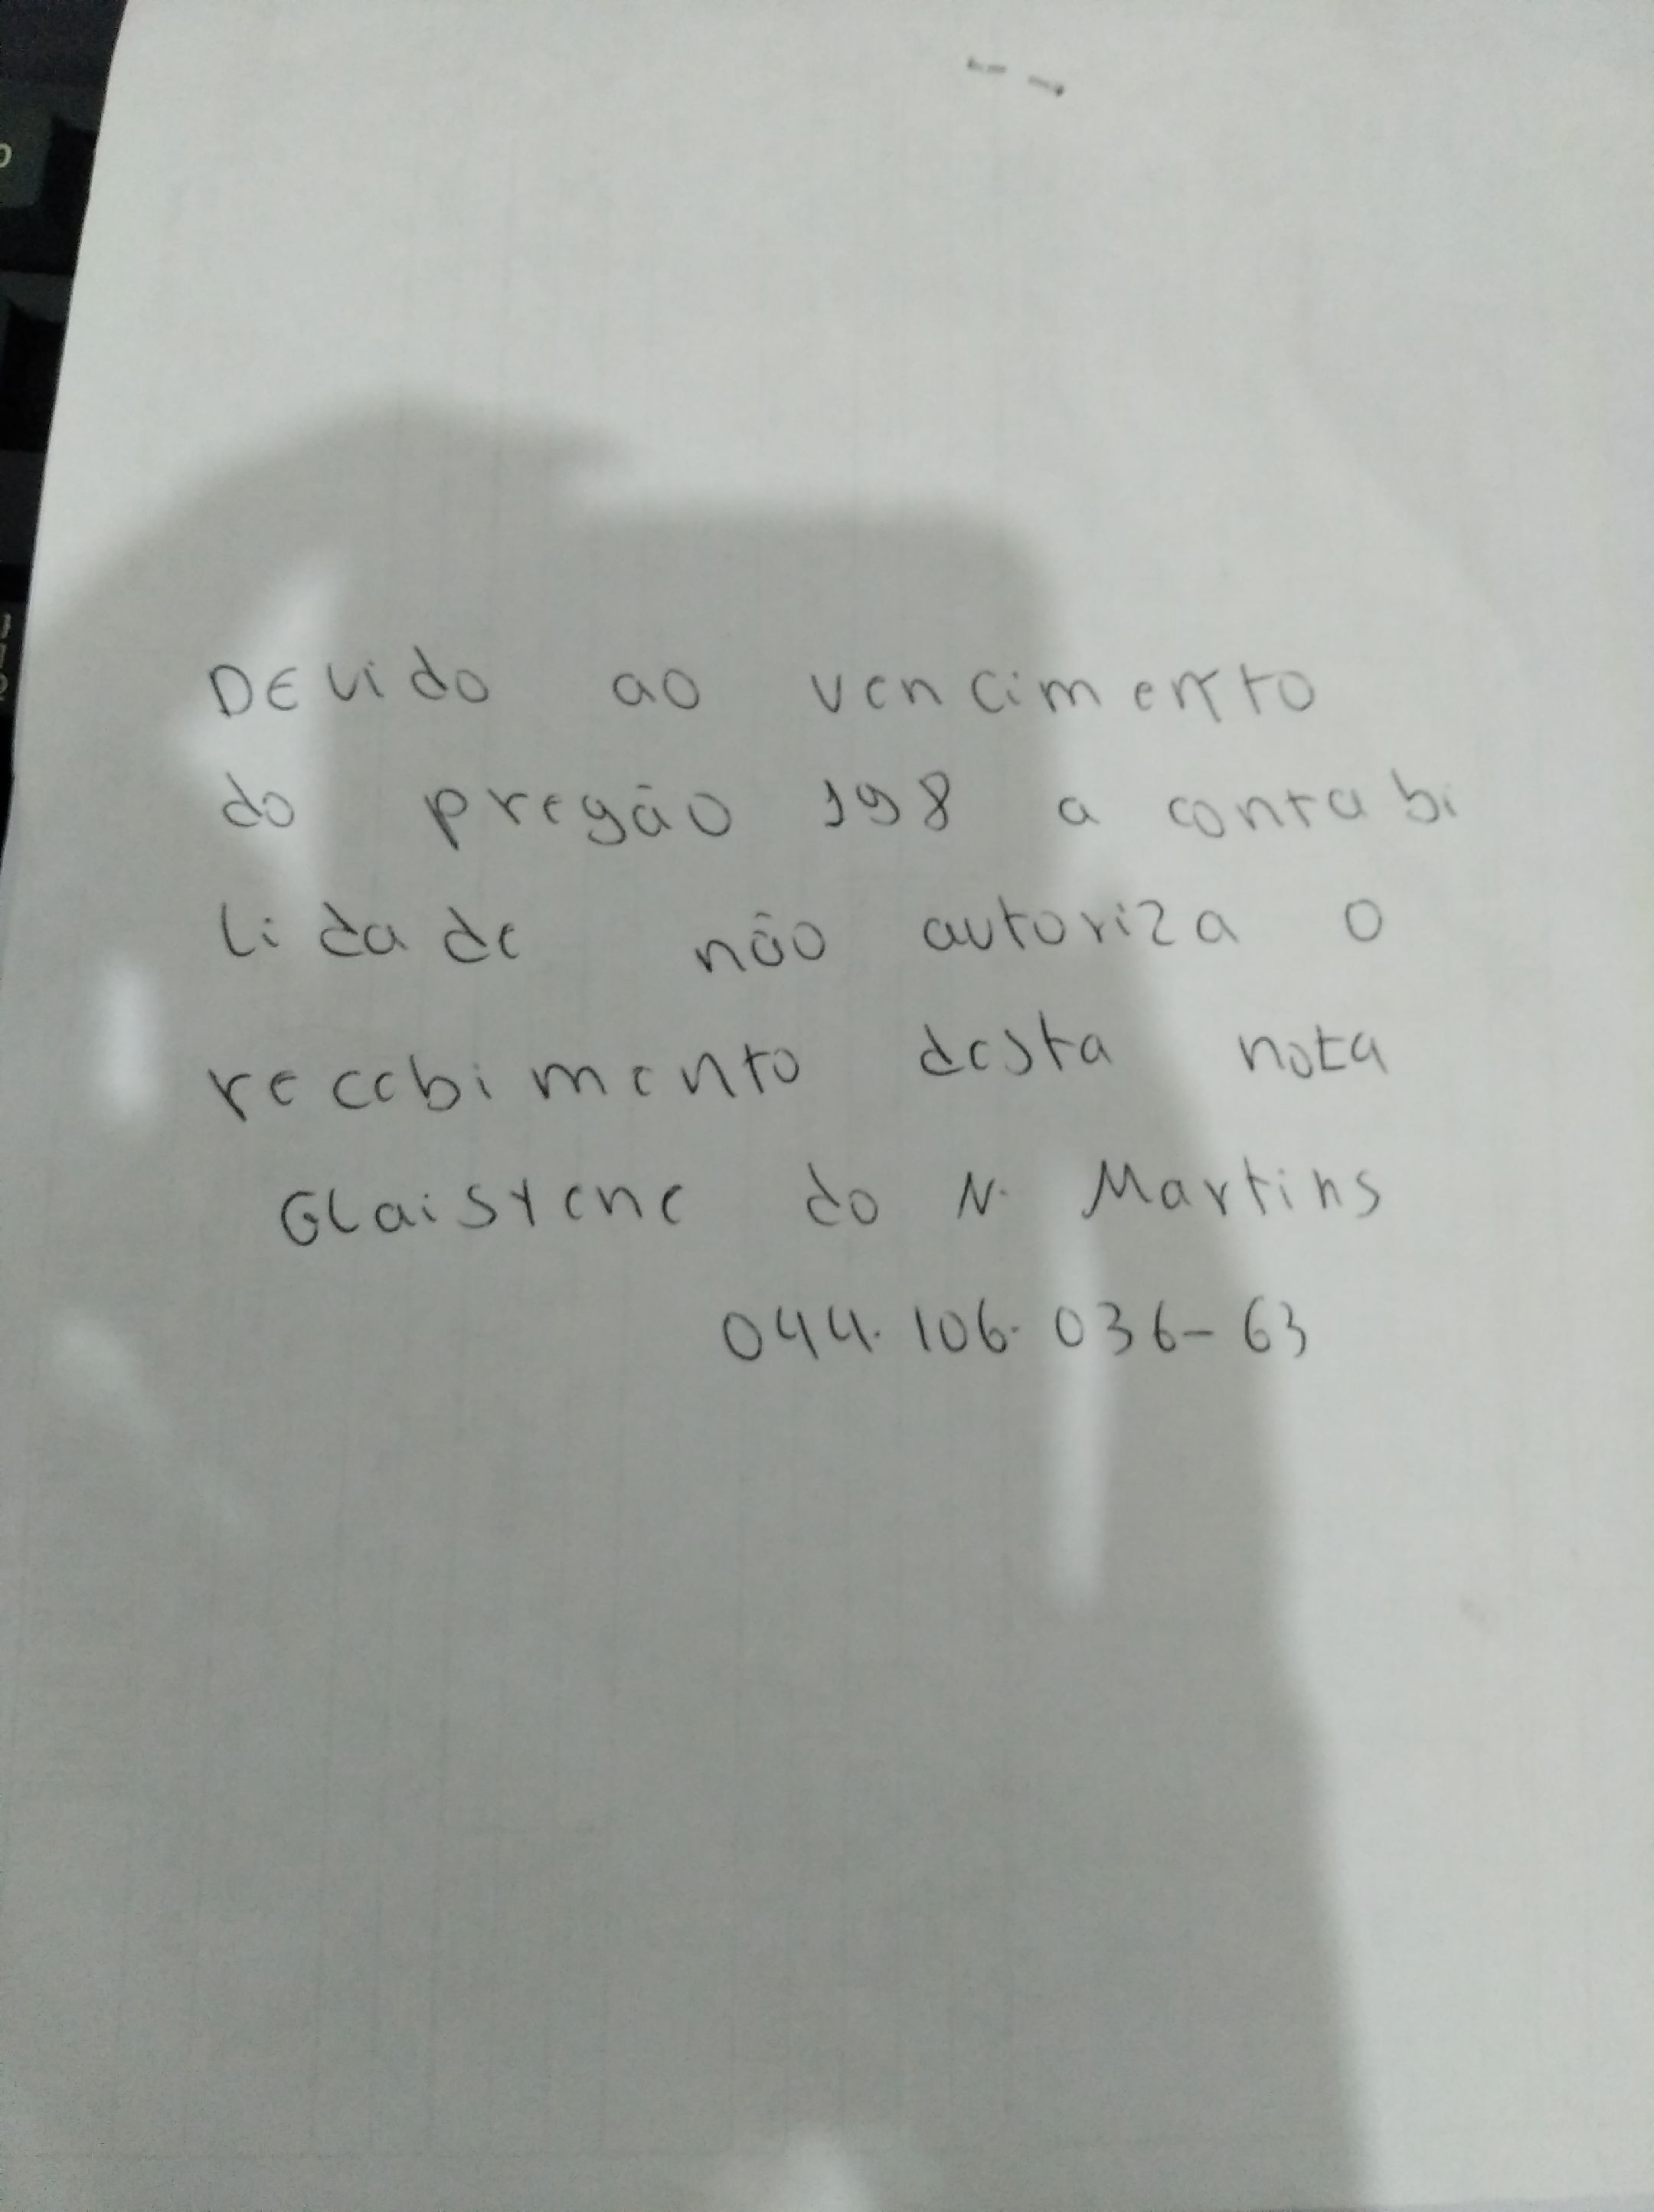 DEvido ao vencimento
do pregão 198 a contabi
lidade não autoriza o
recebimento desta nota
Glaistene do N. Martins
044.106.036-63